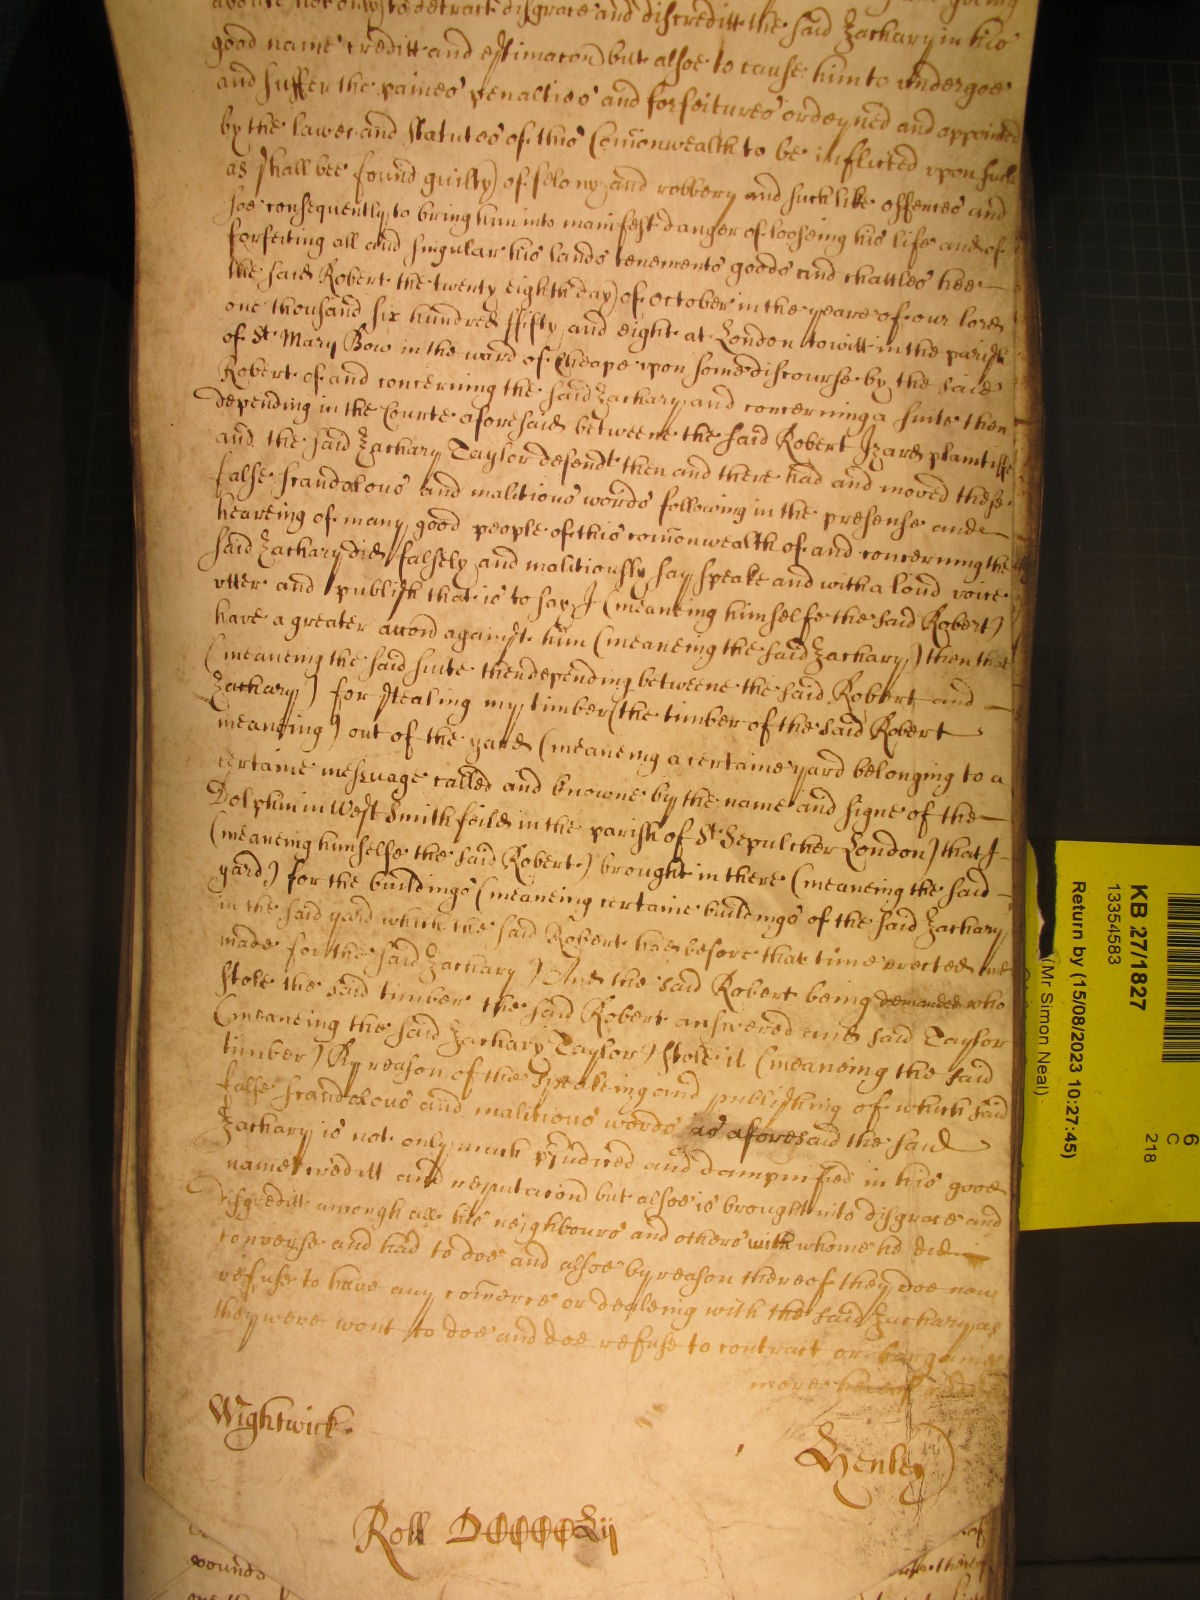 above not only to detract disgrace and discreditt the said Zachary in his
good name creditt and estimacon but alsoe to cause him to undergoe
and suffer the paines penalties and forfeitures ordeyned and appointed
by the lawes and statutes of this Comonwealth to be inflicted upon such
as shall bee found guilty of felony and robbery and such like offences and
soe consequently to bring him into manifest danger of looseing his life and of
forfeiting all and singular his lands tenements goods and chattles hee
the said Robert the twenty eighth day of October in the yeare of our lord
one thousand six hundred ffifty and eight at London towitt in the parish
of St Mary Bow in the ward of Cheape upon some discourse by the said
Robert of and concerning the said Zachary and concerning a suite then
depending in the Courte aforesaid betweene the said Robert Izard plaintiffe
and the said Zachary Taylor defendt then and there had and moved these
false scandalous and malitious words following in the presense and
heareing of many good people of this comonwealth of and concerning the
said Zachary did falsely and malitiously say speake and with a loud voice
utter and publish that is to say I (meaneing himselfe the said Robert)
have a greater accord against him (meaneing the said Zachary) then that
(meaneing the said suite then depending betweene the said Robert and
Zachary) for stealing my timber (the timber of the said Robert
meaneing) out of the yard (meaneing a certaine yard belonging to a
certaine messuage called and knowne by the name and signe of the
Dolphin in West Smithfeild in the parish of St Sepulcher London) that I
(meaneing himselfe the said Robert) brought in there (meaneing the said
yard) for the buildings (meaneing certaine buildings of the said Zachary
in the said yard which the said Robert had before that time erected and
made for the said Zachary) And the said Robert being demanded who
stole the said timber the said Robert answered and said Taylor
(meaneing the said Zachary Taylor) stole it (meaneing the said
timber) By reason of the speakeing and publishing of which said
false scandalous and malitious words as aforesaid the said
Zachary is not only much pjudiced and dampnified in his good
name creditt and reputacond but alsoe is brought into disgrace and
disgreditt amongh all his neighbours and others with whome he did
converse and had to doe and alsoe by reason thereof they doe now
refuse to have any comerce or dealeing with the said Zachary as
they were wont to doe and doe refuse to contract or bargaine
more
Wightwick
Henley
Roll DCCCCLij
wounds
KB 27/1827
13354583
Return by (15/08/2023 10:27:45)
(Mr Simon Neal)
6
C
218